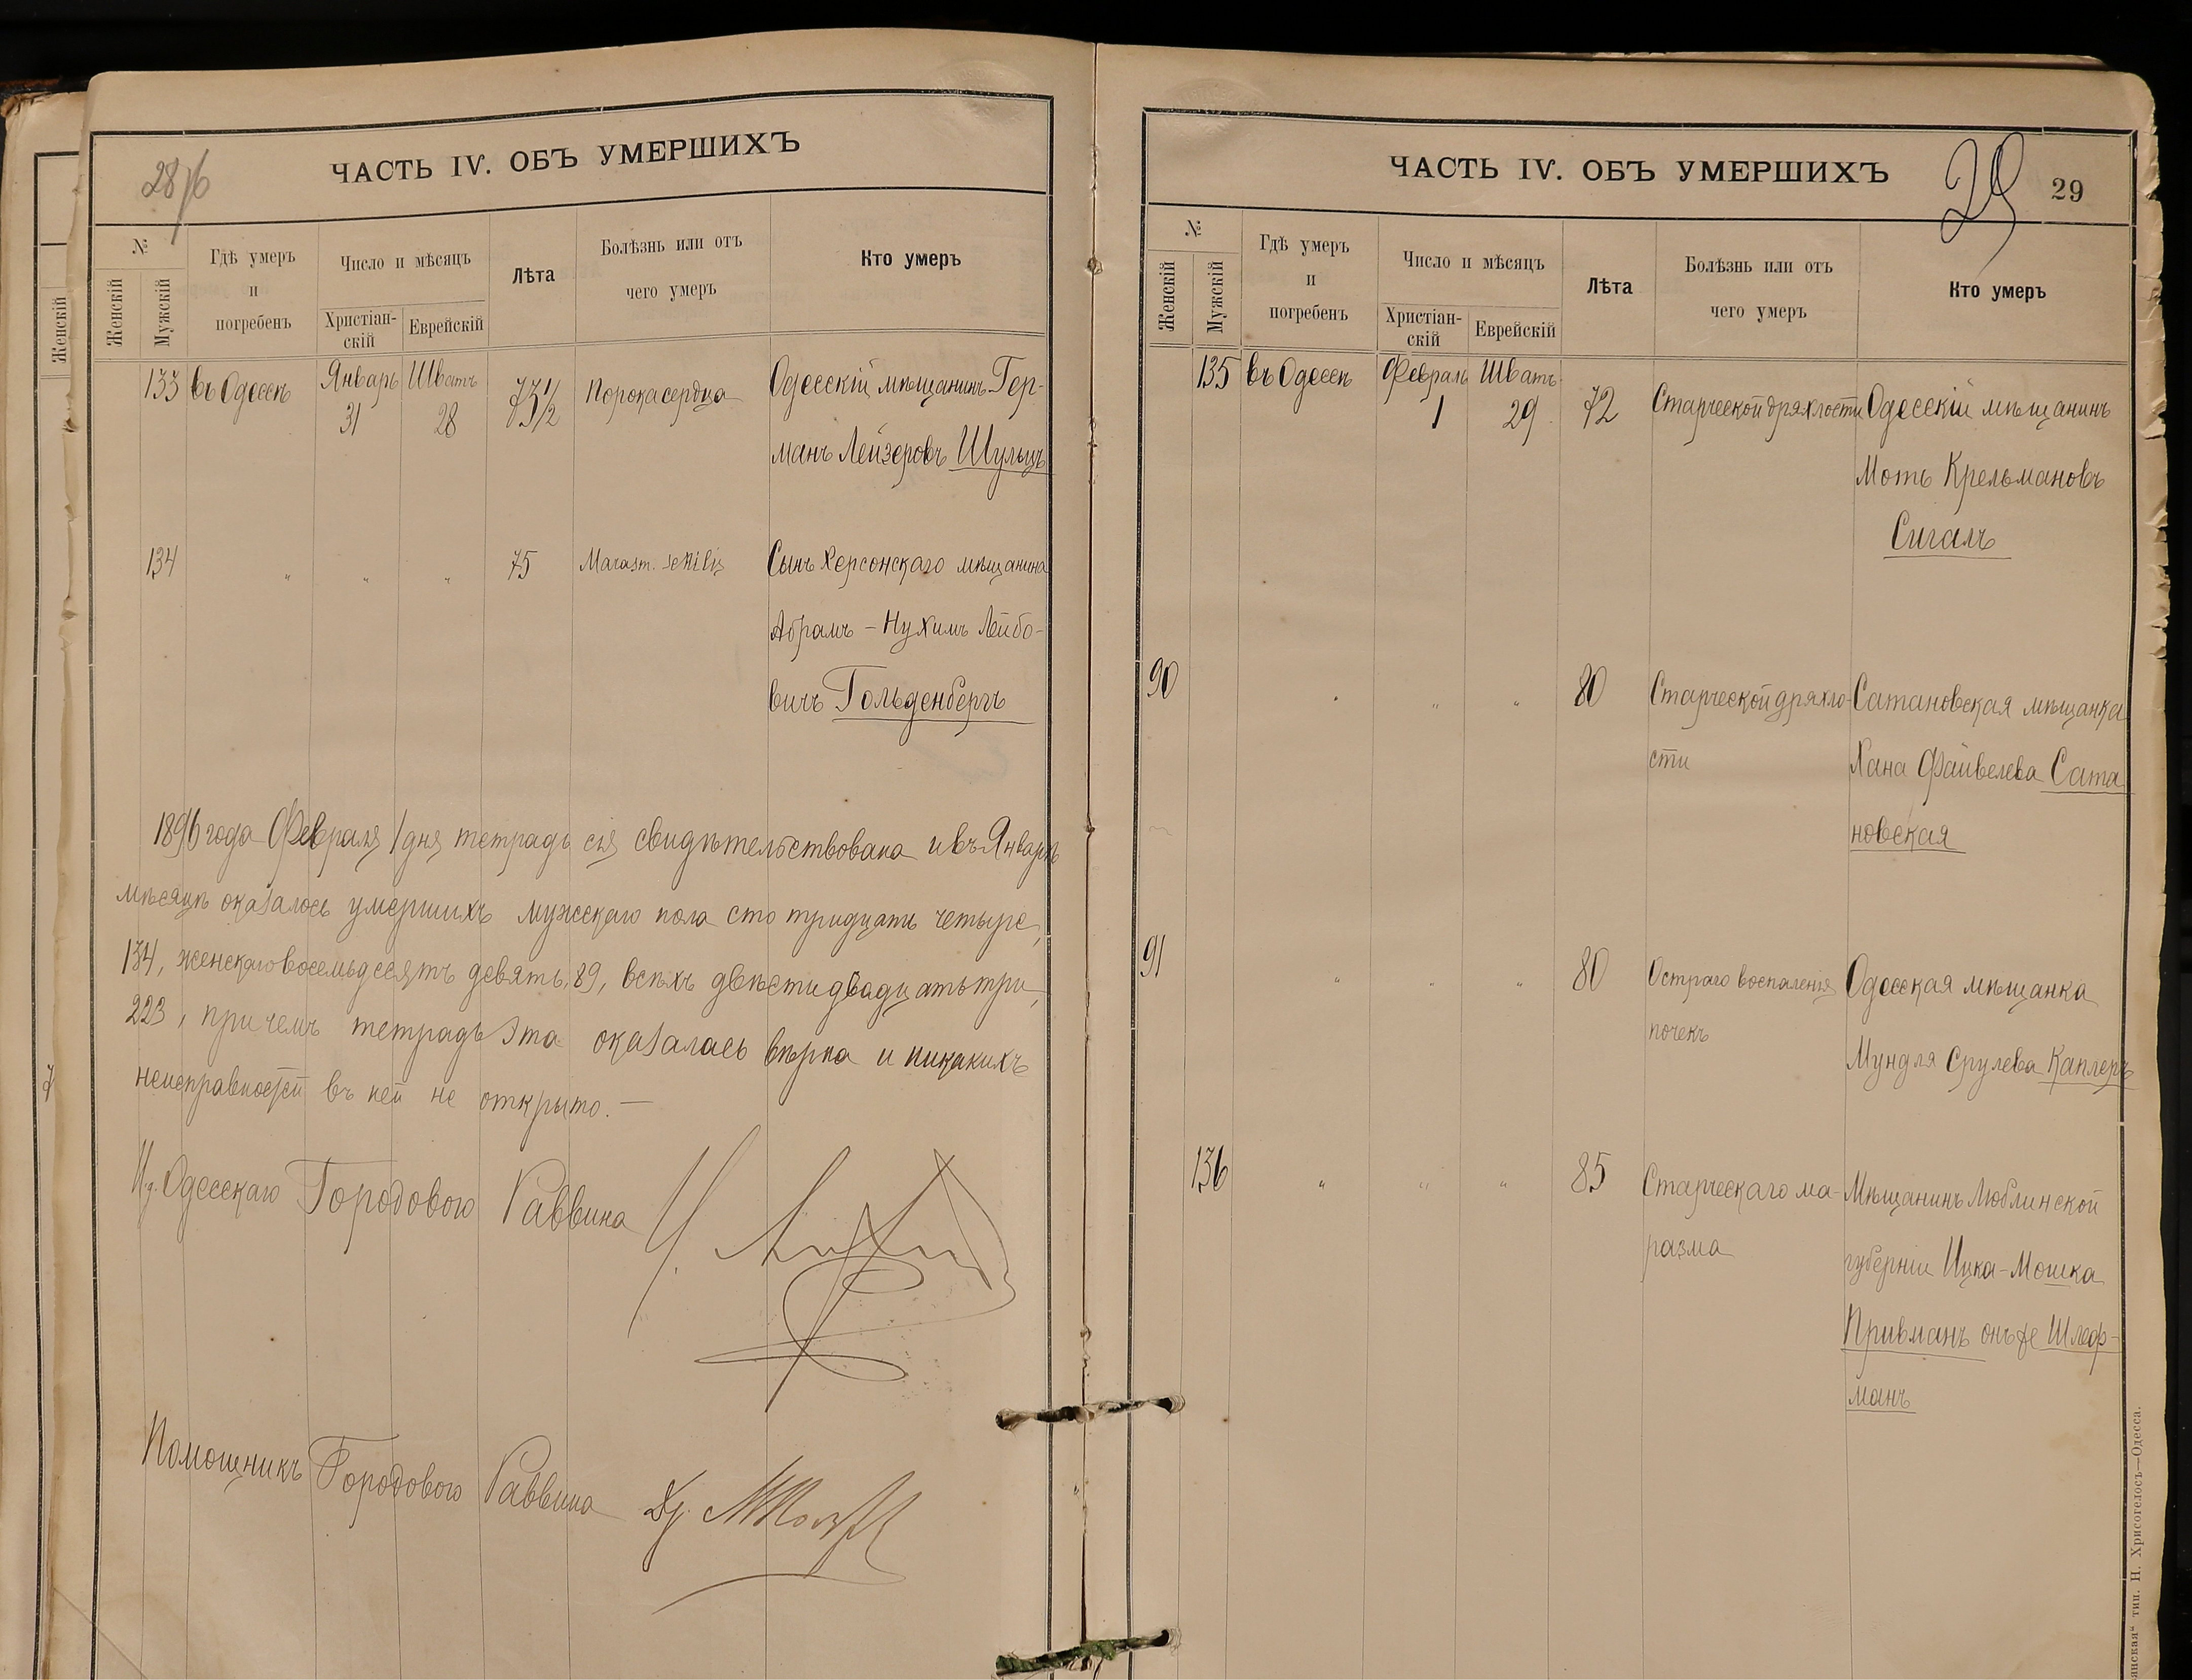 ЧАСТЬ IV. ОБЪ УМЕРШИХЪ
№
Женскій
Мужскій
Гдѣ умеръ
и
погребенъ
Число и мѣсяцъ
Христіан-
скій
Еврейскій
Лѣта
Болѣзнь или отъ
чего умеръ
Кто умеръ
133 въ Одессѣ Январь Шватъ Порока сердца Одесскій мѣщанинъ Гер-
31 28 73 1/2
манъ Лейзеровъ Шульцъ
134 " " " 75 Marasm. senilis Сынъ Херсонскаго мѣщанина
Абрамъ-Нухимъ Лейбо-
вичъ Гольденбергъ
1896 года Февраля 1 дня тетрадь сія свидѣтельствована и въ Январѣ
мѣсяцѣ оказалось умершихъ мужскаго пола сто тридцать четыре,
134, женскаго восемьдесятъ девять, 89, всѣхъ двѣсти двадцать три,
223, при чемъ тетрадь эта оказалась вѣрна и никакихъ
неисправностей въ ней не открыто. —
И.д. Одесскаго Городового Раввина
Помощникъ Городового Раввина
Женскій
ЧАСТЬ IV. ОБЪ УМЕРШИХЪ
29 29
№
Женскій
Мужскій
Гдѣ умеръ
и
погребенъ
Число и мѣсяцъ
Христіан-
скій
Еврейскій
Лѣта
Болѣзнь или отъ
чего умеръ
Кто умеръ
135 въ Одессѣ Февраль Шватъ
1 29 72 Старческой дряхлости Одесскій мѣщанинъ
Моть Крельмановъ
Сигалъ
90 " " " 80 Старческой дряхло- Сатановская мѣщанка
сти Хана Файвелева Сата
новская
91 " " " 80 Остраго воспаленія Одесская мѣщанка
почекъ
Мундля Срулева Каплеръ
136 " " " 85 Старческаго ма- Мѣщанинъ Люблинской
разма губерніи Ицка-Мошка
Привманъ онъ же Шлеф-
манъ
тип. Н. Хрисогелосъ—Одесса.